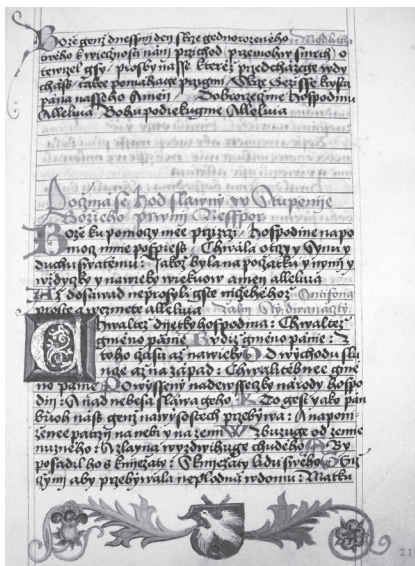 Bože genž dnessnij den skrze gednorozeného
twého k wiecžnosti nám przichod przemohwy smrt o
tewrzel gsy / prosby nasse kterež predchazege wdy
také pomahage przigmi / Skrze Gezisse krysta
pána nasseho Amen / Dobrorzecžme hospodinu
Alleluia Bohu podiekugme Alleluia
Pocžina se hod slawny w Stupenije
Božieho prwnij Nesspor
Bože ku pomoczy mee przizrzi / hospodine napo
moz mnie pospiess / Chwála otczy y Synu y
duchu swatému : Jakož byla na pocžátku y nynij y
wždyczky y nawieky wiekuow amen alleluia
Až dosawad neprosyli gste nižehehož Antifona
proste a wezmete alleluia
Chwaltež dijetky hospodina : Chwaltež
gméno pánie Budiž gméno pánie : z
toho cžasu až nawieky Od wychodu slu
nge až na západ : Chwalitebnee gmé
no pánie Powyssený nadewsseczky národy hospo
din : A nad nebesa sláwa geho Kto gest yako pán
buoh náss genž na wysostech przebýwa : A napom
zenee patrzij na nebi y na zemi Wzbuzuge od zeme
nuzného : A z layna wyzdwihuge chudého Aby
posadil ho s kniježaty : S kniježaty lidu swého Genž
cžynij aby przebýwala neplodná w domu : Matku
21